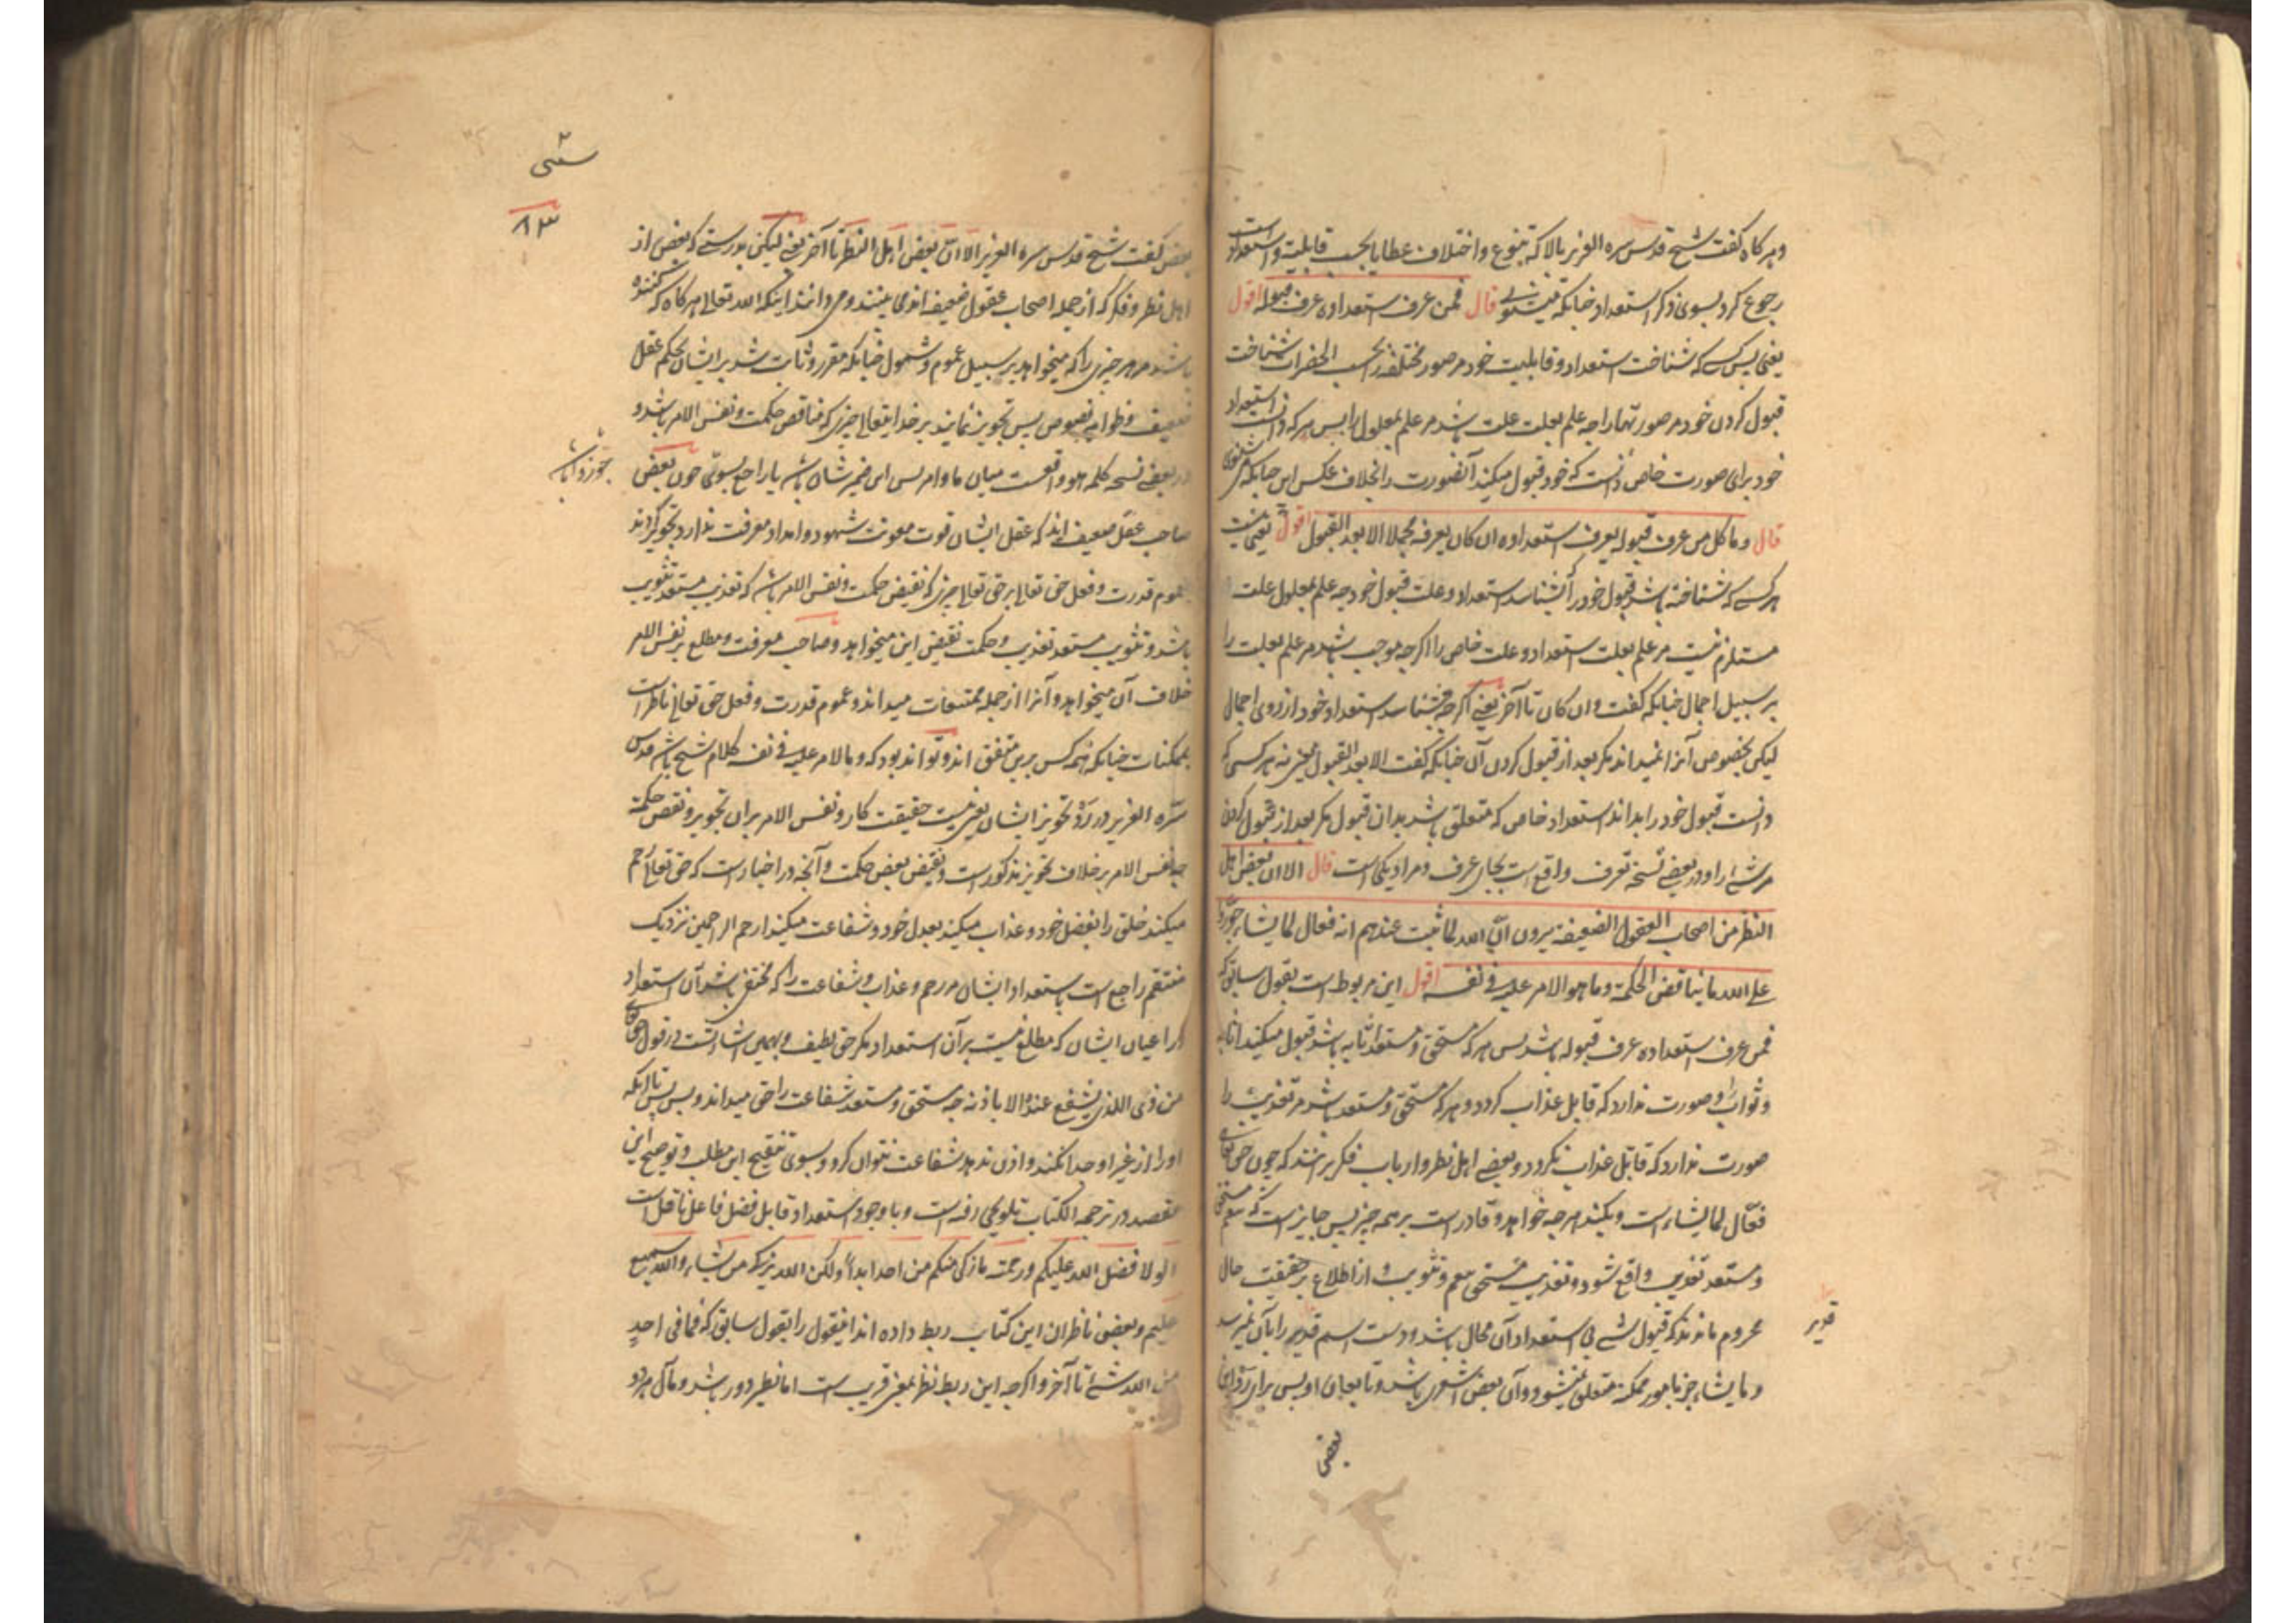 و هرگاه گفت شیخ قدس سره العزیز بالا که تنوع و اختلاف عطایا بحسب قابلیت و استعداد است
رجوع کرد بسوی ذکر استعداد چنانکه میشنوی قال فمن عرف استعداده عرف قبوله اقول
یعنی پس کسی که شناخت استعداد و قابلیت خود مر صور مختلفه را بحسب الحضرات شناخت
قبول کردن خود مر صورتها را چه علم بعلت علت باشد مر علم بمعلول را پس هر که دانست استعداد
خود برای صورت خاص دانست که خود قبول میکند آنصورت را بخلاف عکس این چنانکه می شنوی
قال و ما کل من عرف قبوله یعرف استعداده ان کان یعرفه مجملا الا بعد القبول اقول یعنی نیست
هر کسی که شناخته باشد قبول خود را بشناسد استعداد و علت قبول خود چه علم بمعلول علت
مستلزم نیست مر علم بعلت استعداد و علت خاص را اگرچه موجب باشد مر علم بعلت را
بر سبیل اجمال چنانکه گفت و ان کان تا آخر یعنی اگرچه بشناسد استعداد خود از روی اجمال
لیکن بخصوص آنرا نمیداند مگر بعد از قبول کردن آن چنانکه گفت الا بعد القبول یعنی نه هر کسی که
دانست قبول خود را بداند استعداد خاص که متعلق باشد بدان قبول مگر بعد از قبول کردن
مر شئ را و در بعضے نسخه تعرف واقع است بجای عرف و مراد یکی است قال الا ان بعض اهل
النظر من اصحاب العقول الضعیفة یرون ان الله لما ثبت عندهم انه فعال لما یشاء جوزوا
علی الله ما یناقض الحکمة و ما هو الامر علیه فی نفسه اقول این مربوط است بقول سابق که
فمن عرف استعداده عرف قبوله باشد پس هر که مستحق و مستعد اثابه باشد قبول میکند اثابه
و ثواب را و صورت ندارد که قابل عذاب گردد و هر که مستحق و مستعد باشد مر تعذیب را
صورت ندارد که قابل عذاب نگردد و بعضے اهل نظر و ارباب فکر برانند که چون حق تعالی
فعّال لما یشاء است و میکند هر چه خواهد و قادر است بر همه چیز پس جایز است که تنعم مستحق
و مستعد تعذیب واقع شود و تعذیب مستحق تنعم و تثویب و از اطلاع بر حقیقت حال
محروم ماندند که قبول شئ بی استعداد آن محال باشد و دست اسم قدیر را بآن نمیرسد
و ما یشاء جز بامور ممکنه متعلق نمیشود و آن بعض اشعری باشد و تابعان او پس برای رد این
قدیر
بعض
شئی
۸۳
بعض گفت شیخ قدس سره العزیز الا ان بعض اهل النظر تا آخر یعنی لیکن بدرستے که بعض از
اهل نظر و فکر که از جمله اصحاب عقول ضعیف اند می بینند و می دانند اینکه الله تعالی هرگاه که کننده
باشد مر هر چیزی را که میخواهد بر سبیل عموم و شمول چنانکه مقرر و ثابت شد بر ایشان بحکم عقل
ضعیف و ظواهر نصوص پس تجویز نمایند بر خدایتعالی چیزی که مناقض حکمت و نفس الامر باشد و
در بعضے نسخه کلمه هو واقعست میان ما و امر پس این ضمیر شان باشد یا راجع بسوی چون بعض
جوزوا باشد
صاحب عقل ضعیف اند که عقل ایشان قوت معونت شهود و امداد معرفت ندارد تجویز کردند
بعموم قدرت و فعل حق تعالی بر حق تعالی چیزی که نقیض حکمت و نفس الامر باشد که تعذیب مستعد تثویب
باشد و تثویب مستعد تعذیب و حکمت نقیض این میخواهد و صاحب معرفت و مطلع بر نفس الامر
خلاف آن میخواهد و آنرا از جمله ممتنعات میداند و عموم قدرت و فعل حق تعالی ناظر است
بممکنات چنانکه همه کس برین متفق اند و تواند بود که و ما الامر علیه فی نفسه کلام شیخ باشد قدس
سره العزیز در رد تجویز ایشان یعنی نیست حقیقت کار و نفس الامر بران تجویز و نقض حکمة
چه نفس الامر بر خلاف تجویز مذکور است و نقیض بعض حکمت و آنچه در اخبار است که حق تعالی رحم
میکند خلق را بفضل خود و عذاب میکند بعدل خود و شفاعت میکند ارحم الراحمین نزدیک
منتقم راجع است باستعداد ایشان مر رحم و عذاب و شفاعت را که مختفی باشد آن استعداد
در اعیان ایشان که مطلع نیست بر آن استعداد مگر حق لطیف و بهمین اشارتست در قول حق تعالی
من ذی الذی یشفع عنده الا باذنه چه مستحق و مستعد شفاعت را حق میداند و بس پس تا آنکه
او را از غیر او جدا نکند و اذن ندهد شفاعت نتوان کرد و بسوی تنقیح این مطلب و توضیح این
مقصد در ترجمه الکتاب تلویحی رفته است و با وجود استعداد قابل فضل فاعل ناقل است
لولا فضل الله علیکم و رحمته ما زکی منکم من احد ابداً و لکن الله یزکی من یشاء و الله سمیع
علیم و بعض ناظران این کتاب ربط داده اند اینقول را بقول سابق که فما فی احدٍ
من الله شئ تا آخر و اگرچه این ربط نظر بمعنی قریب است اما نظر دور باشد و مآل هر دو